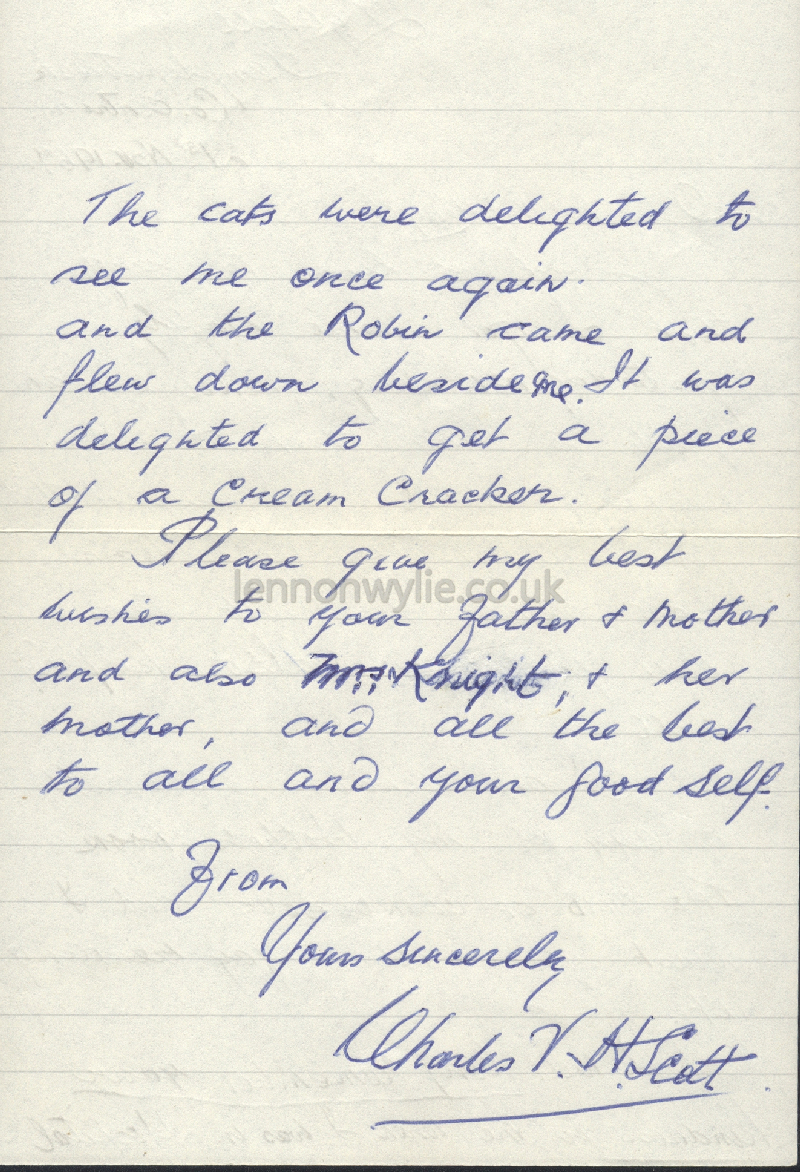 The cats were delighted to
see me once again.
and the Robin came and
flew down beside me. It was
delighted to get a piece
of a Cream Cracker.
Please give my best
lennonwylie.co.uk
wishes to your Father & Mother
and also Knight, & her
mother, and all the best
to all and your good self.
From
Yours Sincerely
Charles V. H. Scott.